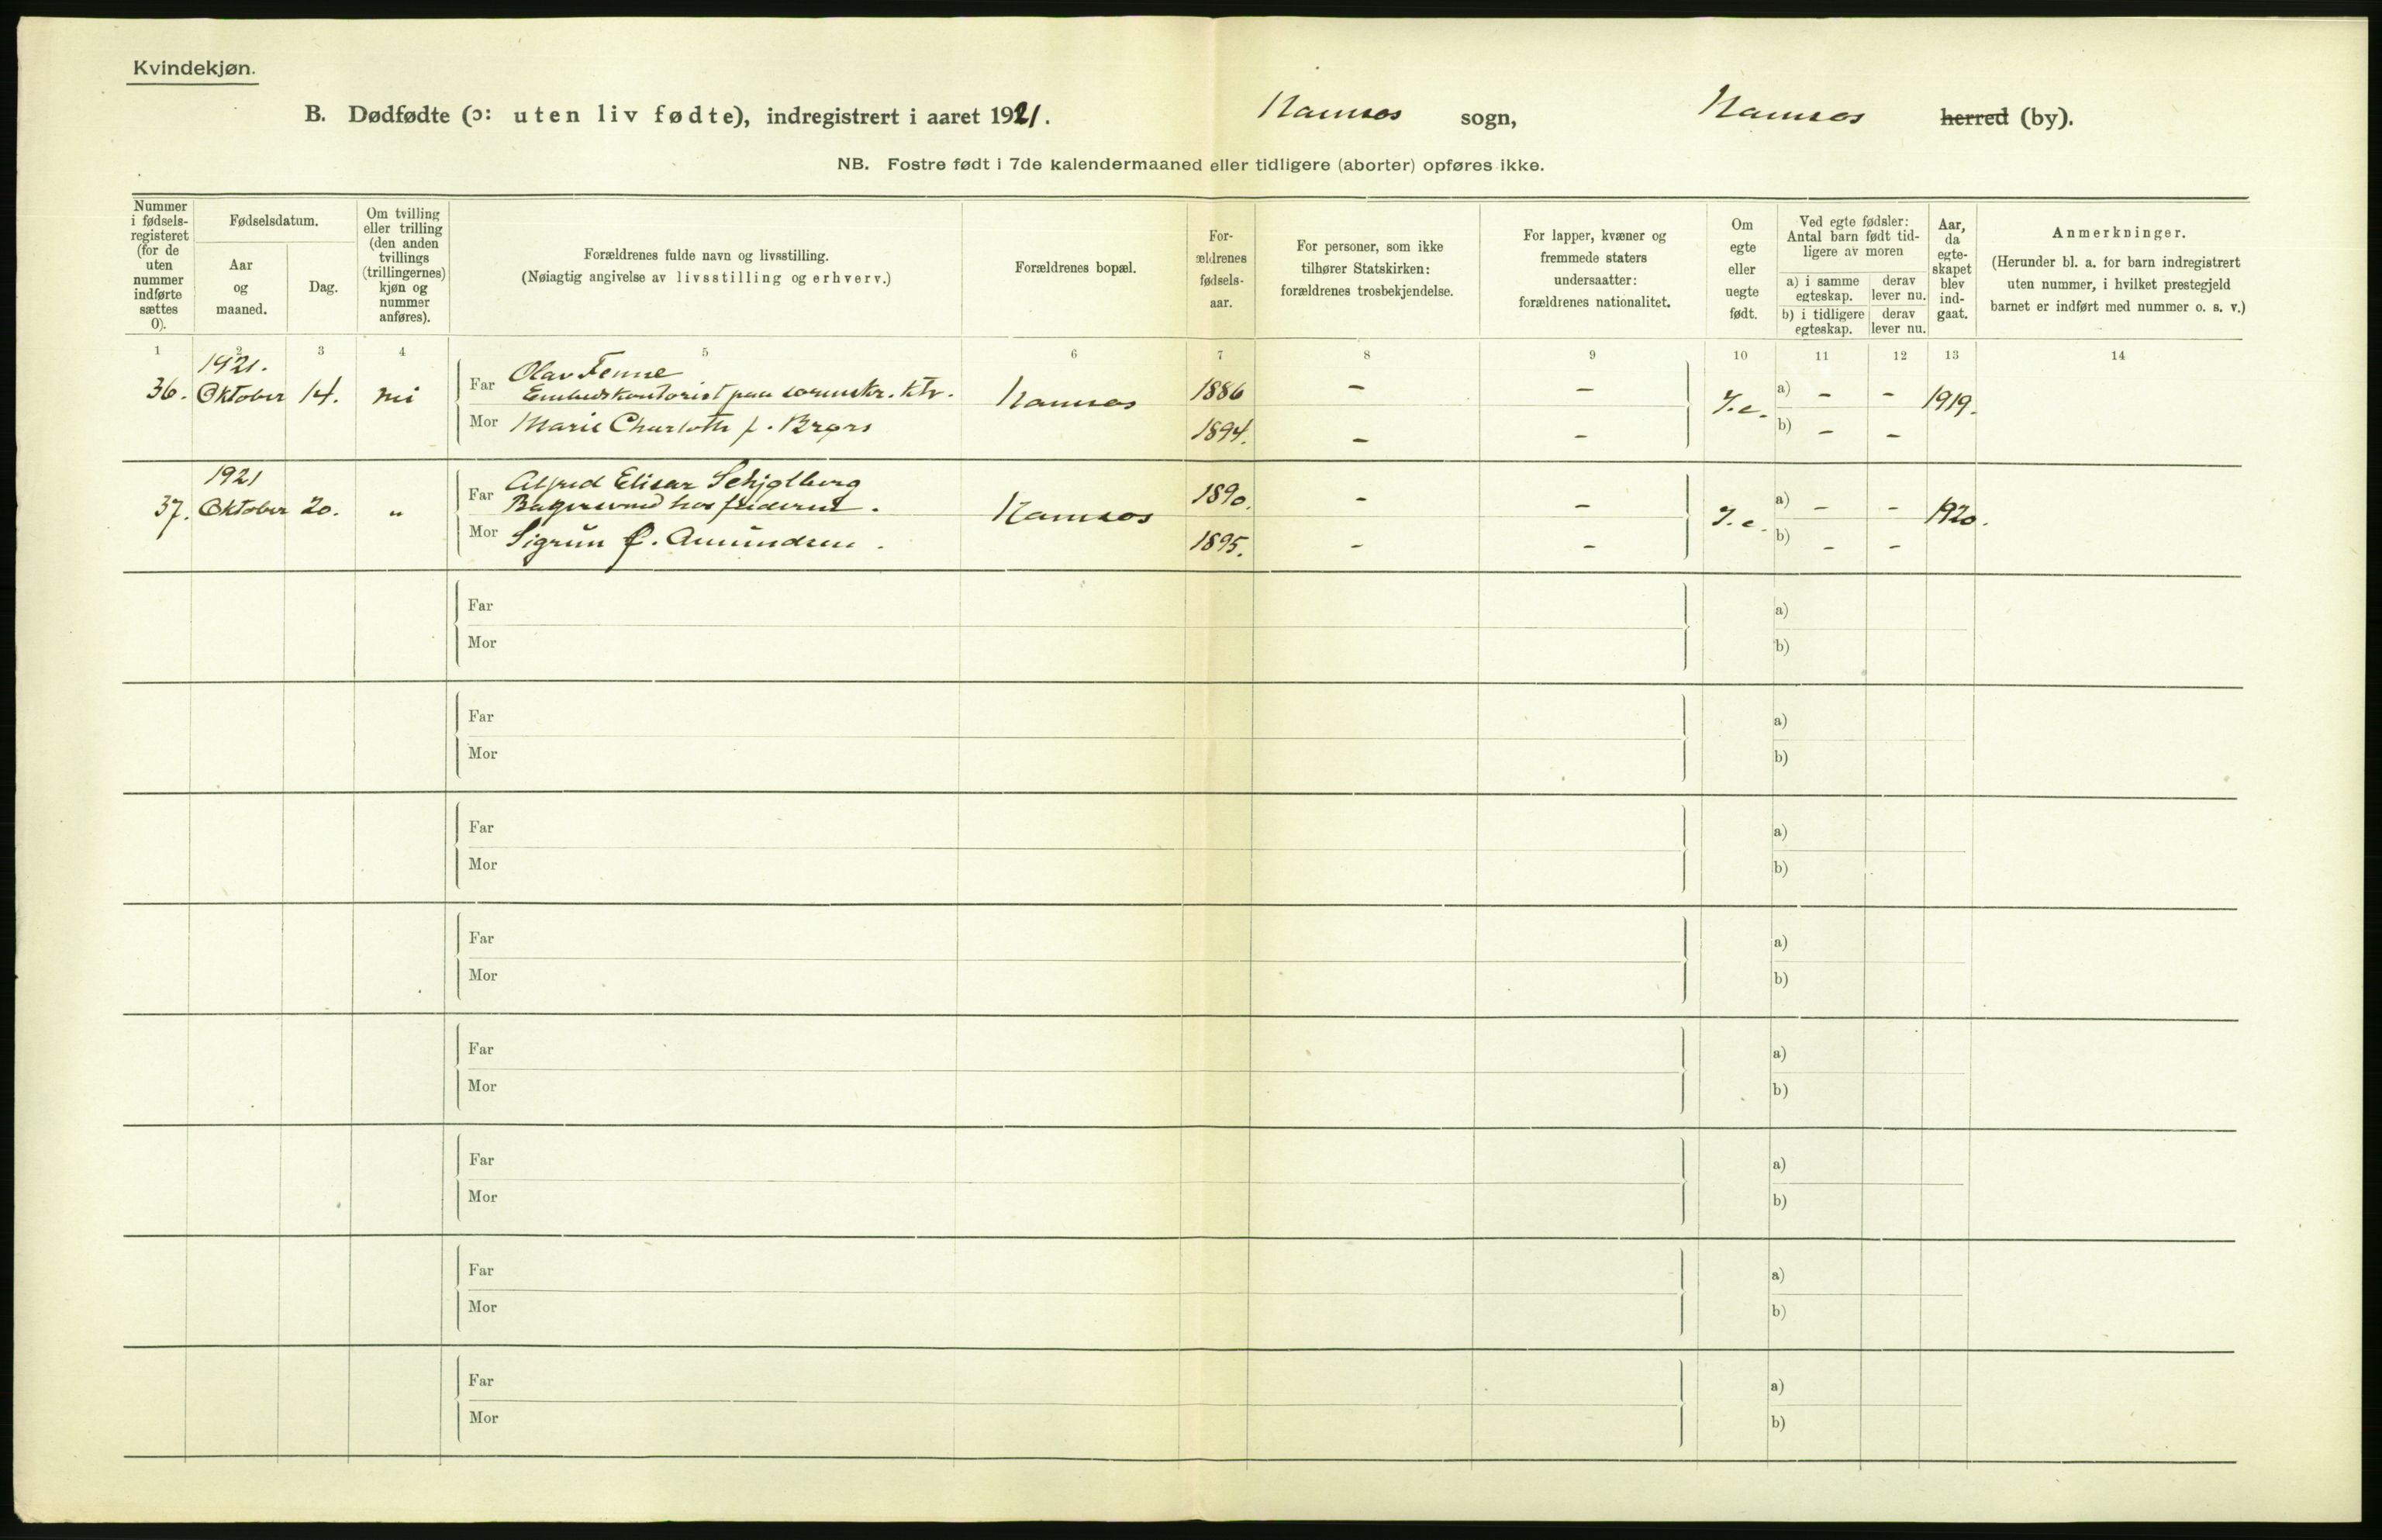 Kvindekjøn.
B. Dødfødte (ɔ: uten liv fødte), indregistrert i aaret 1921. Namsos sogn, Namsos herred (by).
NB. Fostre født i 7de kalendermaaned eller tidligere (aborter) opføres ikke.
Nummer i fødsels-registeret (for de uten nummer indførte sættes 0).
Fødselsdatum.
Aar og maaned.
Dag.
Om tvilling eller trilling (den anden tvillings (trillingernes) kjøn og nummer anføres).
Forældrenes fulde navn og livsstilling.
(Nøiagtig angivelse av livsstilling og erhverv.)
Forældrenes bopæl.
For-ældrenes fødsels-aar.
For personer, som ikke tilhører Statskirken: forældrenes trosbekjendelse.
For lapper, kvæner og fremmede staters undersaatter: forældrenes nationalitet.
Om egte eller uegte født.
Ved egte fødsler: Antal barn født tid-ligere av moren
a) i samme egteskap.
derav lever nu.
b) i tidligere egteskap.
derav lever nu.
Aar, da egte-skapet blev ind-gaat.
Anmerkninger.
(Herunder bl. a. for barn indregistrert uten nummer, i hvilket prestegjeld barnet er indført med nummer o. s. v.)
1 2 3 4 5 6 7 8 9 10 11 12 13 14
1921.
36. Oktober 14. nei
Far Olav Fenne
Namsos 1886 – – a) – – 1919.
Mor Marie Charlotte f. Brørs 1894. – – b) – –
1921
37. Oktober 20. "
Far Alfred Elisar Schjølberg
Bagersvend hos
Namsos 1890. – – a) – – 1920.
Mor Sigrun f. Amundsen. 1895. – – b) – –
Far a)
Mor b)
Far a)
Mor b)
Far a)
Mor b)
Far a)
Mor b)
Far a)
Mor b)
Far a)
Mor b)
Far a)
Mor b)
Far a)
Mor b)